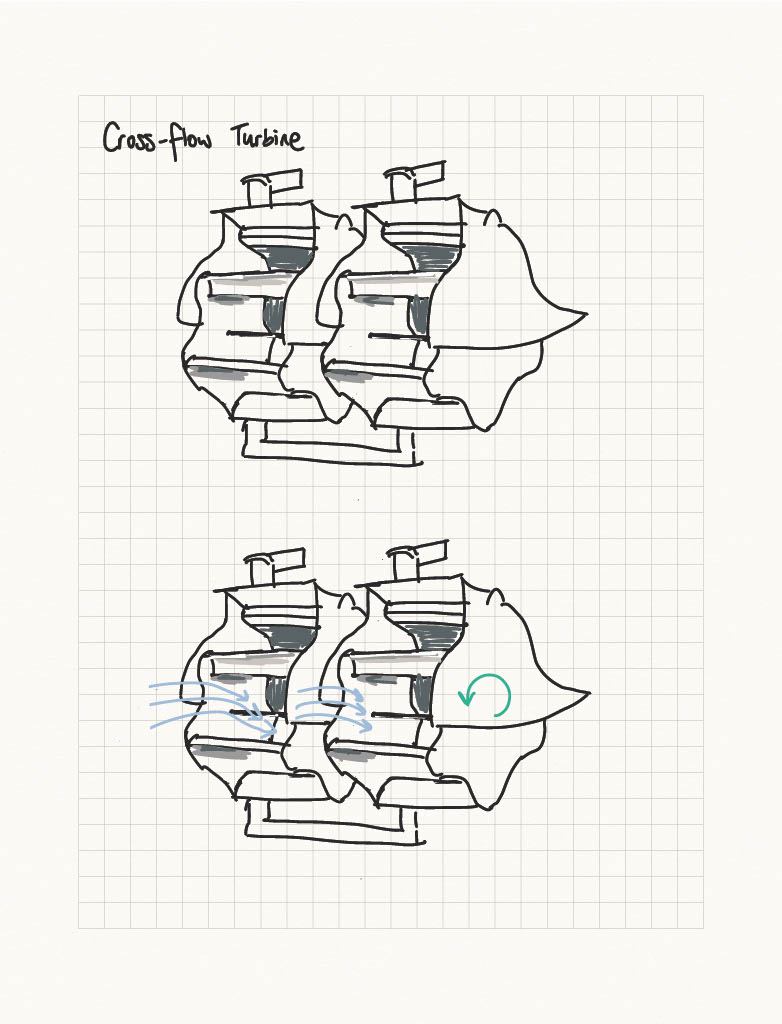 Cross-flow Turbine